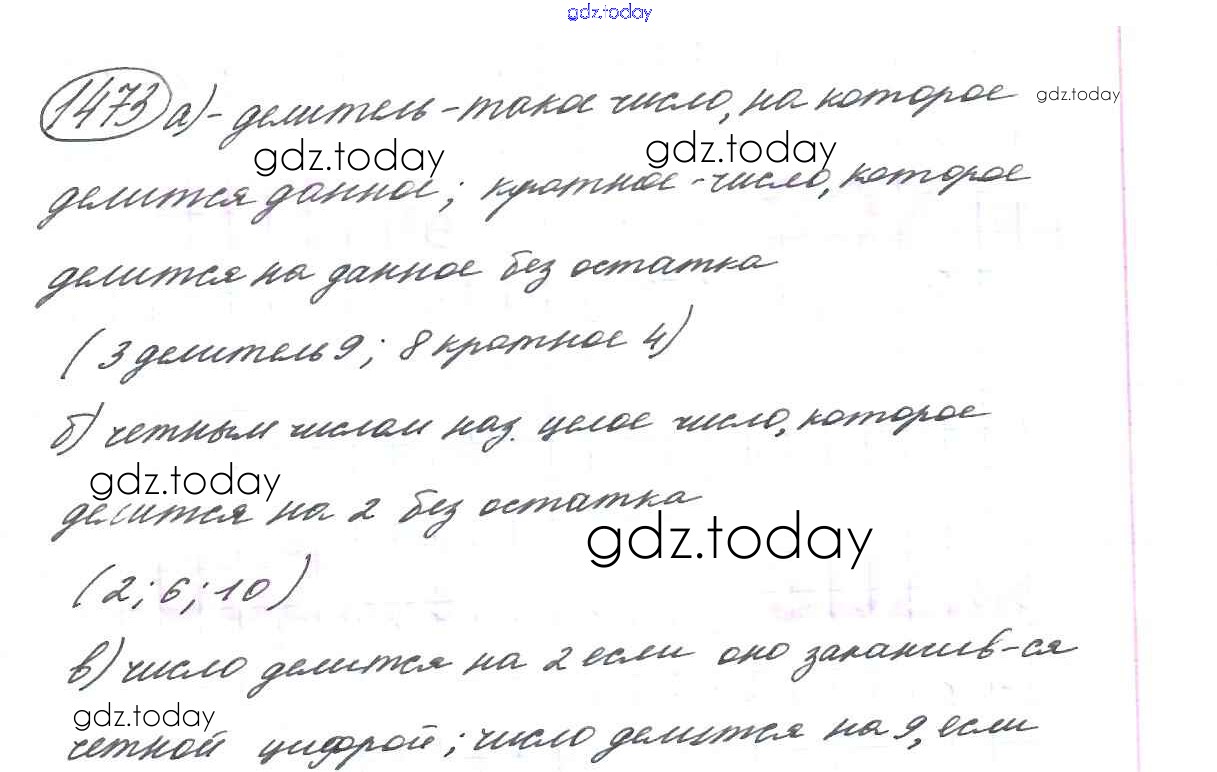 gdz.today
1473 а)- делитель - такое число, на которое
gdz.today
gdz.today
gdz.today
делится данное; кратное - число, которое
делится на данное без остатка
(3 делитель 9; 8 кратное 4)
б) четным числом наз. целое число, которое
gdz.today
делится на 2 без остатка
gdz.today
(2; 6; 10)
в) число делится на 2 если оно заканчив-ся
gdz.today
четной цифрой; число делится на 9, если